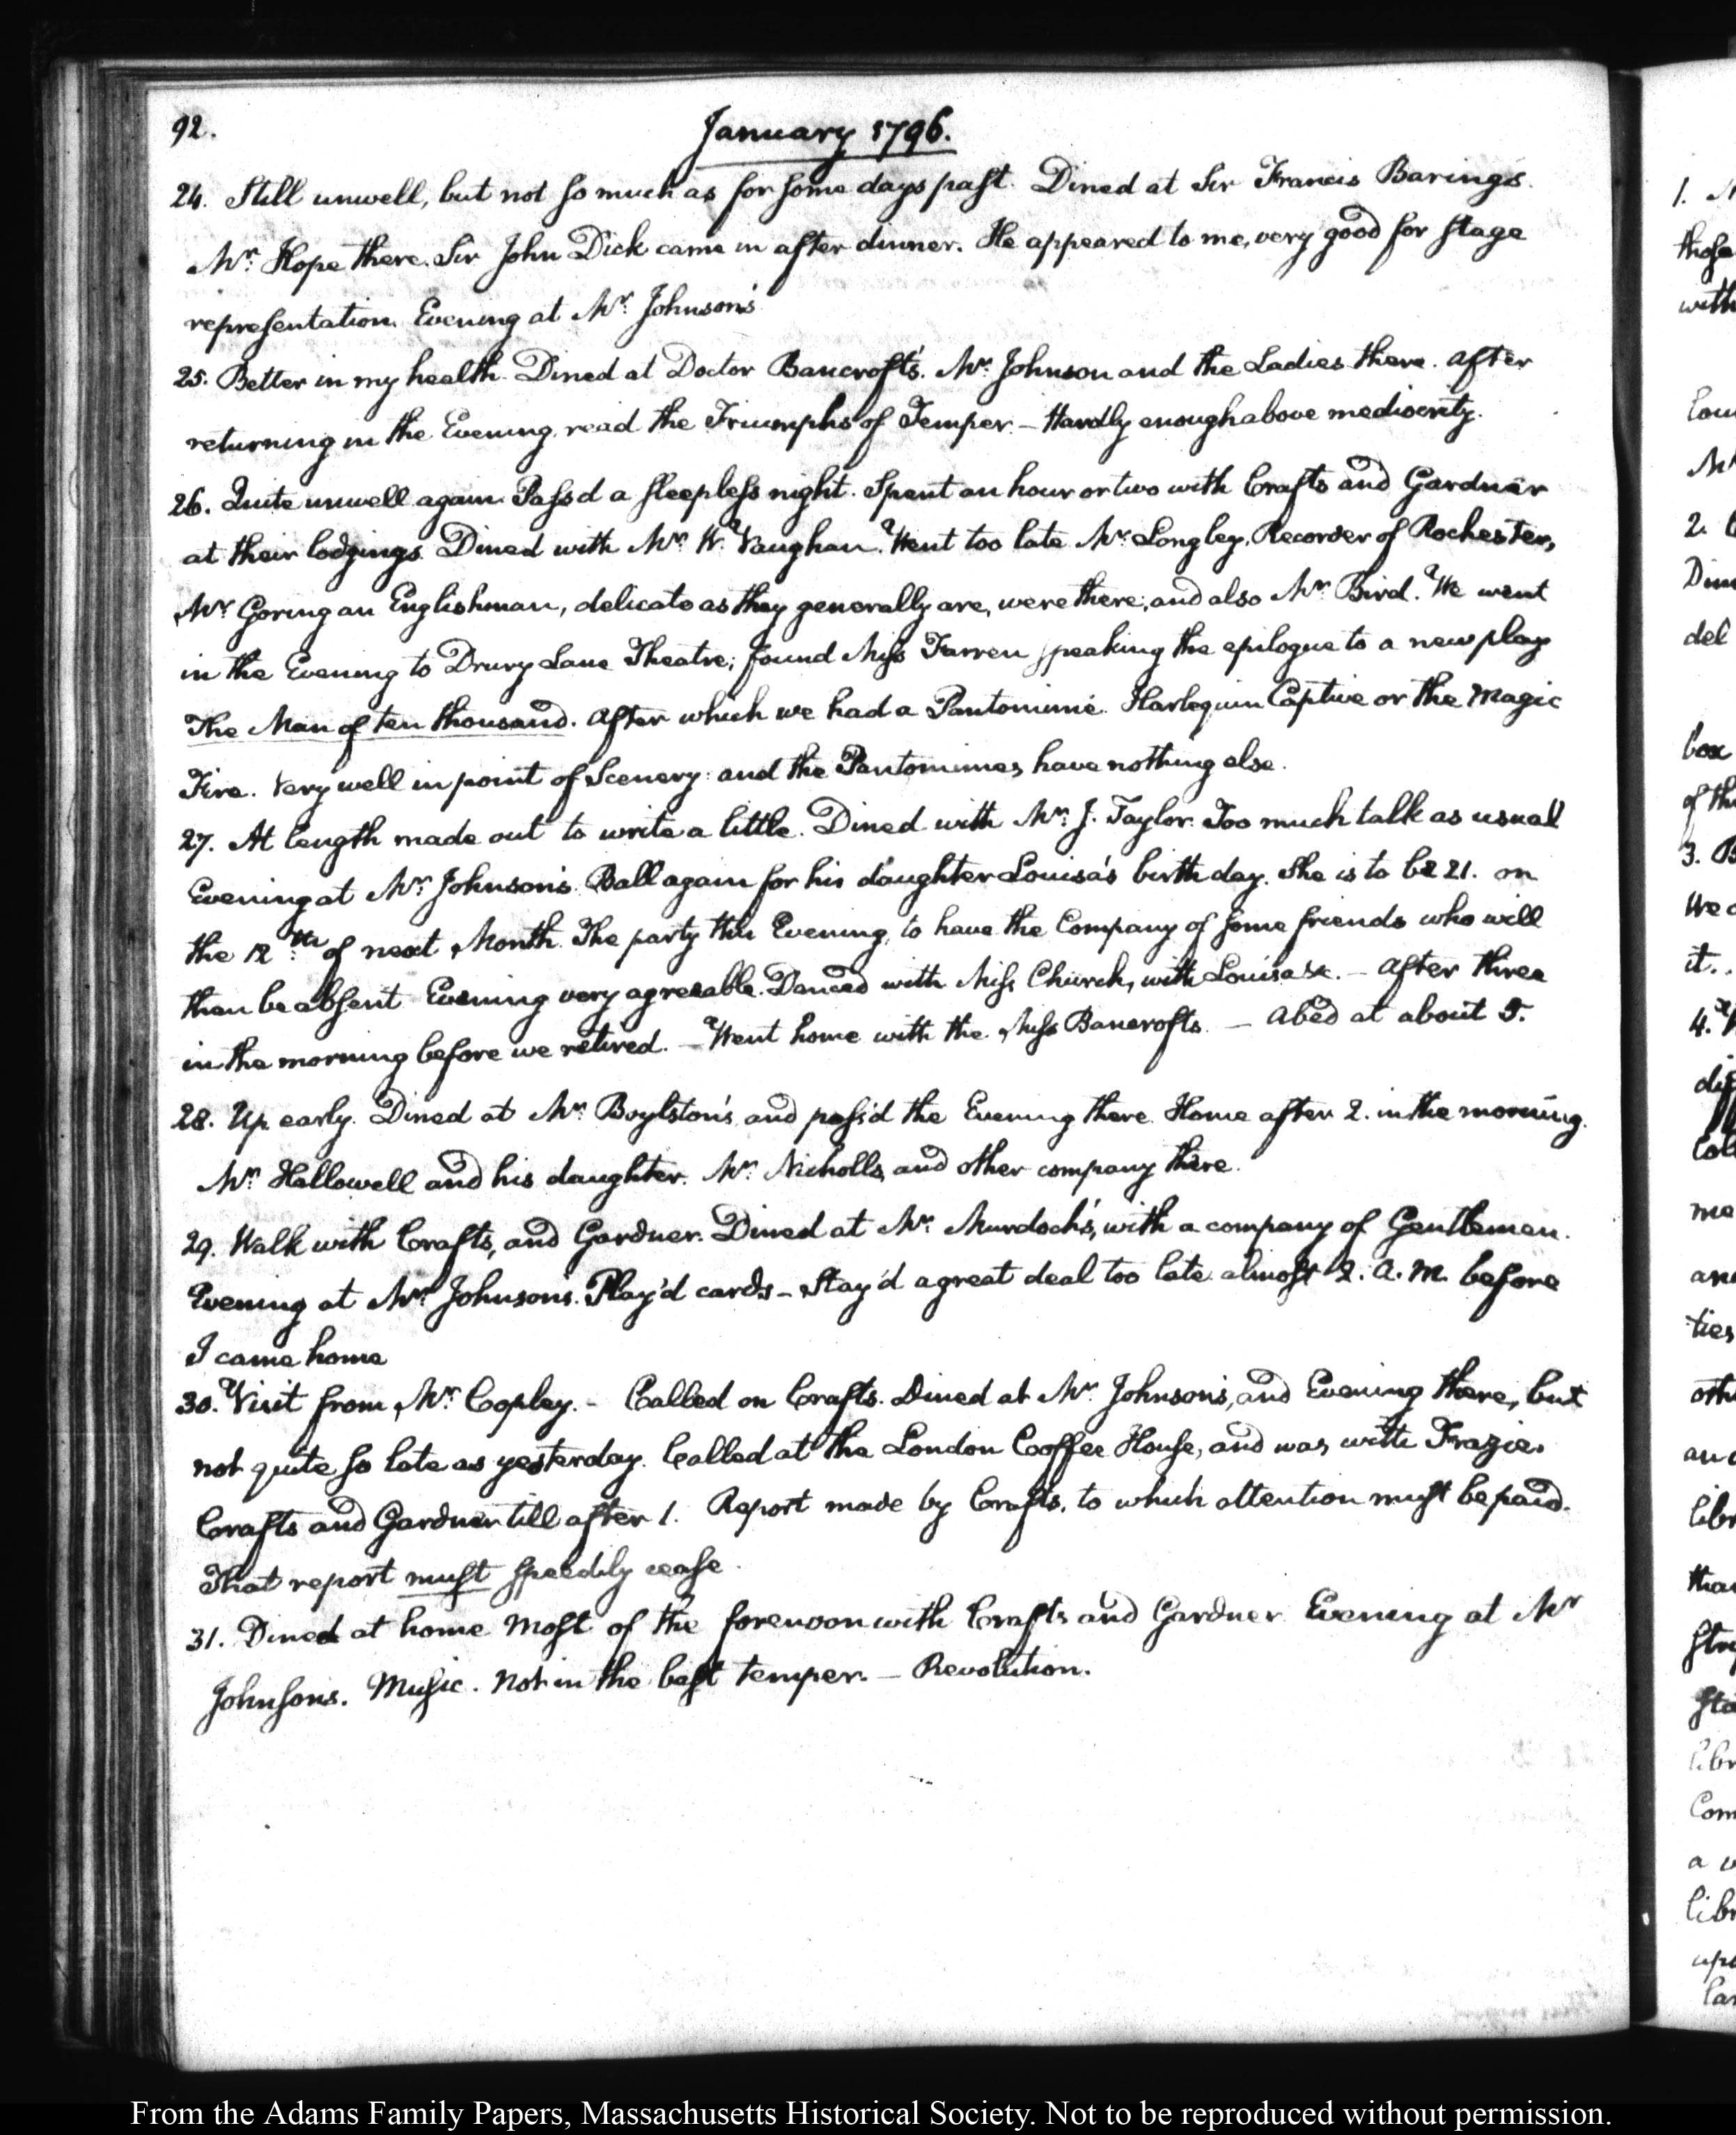 92.
January 1796.
24. Still unwell, but not so much as for some days past. Dined at Sir Francis Baring's.
Mr. Hope there. Sir John Dick came in after dinner. He appeared to me, very good for stage
representation. Evening at Mr. Johnson's
25. Better in my health. Dined at Doctor Bancroft's. Mr. Johnson and the Ladies there. After
returning in the Evening, read the Triumphs of Temper. — Hardly enough above mediocrity.
26. Quite unwell again. Pass'd a sleepless night. Spent an hour or two with Crafts and Gardner
at their lodgings. Dined with Mr. W. Vaughan. Went too late Mr. Longley, Recorder of Rochester,
Mr. Goring an Englishman, delicate as they generally are, were there; and also Mr. Bird. We went
in the Evening to Drury Lane Theatre; found Miss Farren speaking the epilogue to a new play
The Man of ten thousand. After which we had a Pantomime. Harlequin Captive or the Magic
Fire. Very well in point of Scenery: and the Pantomimes have nothing else.
27. At length made out to write a little. Dined with Mr. J. Taylor. Too much talk as usual
Evening at Mr. Johnson's. Ball again for his daughter Louisa's birth day. She is to be 21. on
the 12th. of next Month. The party this Evening, to have the Company of some friends who will
then be absent. Evening very agreeable. Danced with Miss Church, with Louisa &c. — After three
in the morning before we retired. — Went home with the Miss Bancrofts. — Abed at about 5.
28. Up early. Dined at Mr. Boylston's and pass'd the Evening there. Home after 2. in the morning.
Mr. Hallowell and his daughter. Mr. Nicholls, and other company there.
29. Walk with Crafts, and Gardner. Dined at Mr. Murdoch's, with a company of Gentlemen.
Evening at Mr. Johnson's. Play'd cards — Stay'd a great deal too late. almost 2. A.M. before
I came home
30. Visit from Mr. Copley. — Called on Crafts. Dined at Mr. Johnson's, and Evening there, but
not quite so late as yesterday. Called at the London Cooffee House, and was with Frazier
Crafts and Gardner till after 1. Report made by Crafts, to which attention must be paid.
That report must speedily cease.
31. Dined at home most of the forenoon with Crafts and Gardner Evening at Mr
Johnsons. Music. Not in the best temper. — Revolution.
From the Adams Family Papers, Massachusetts Historical Society. Not to be reproduced without permission.